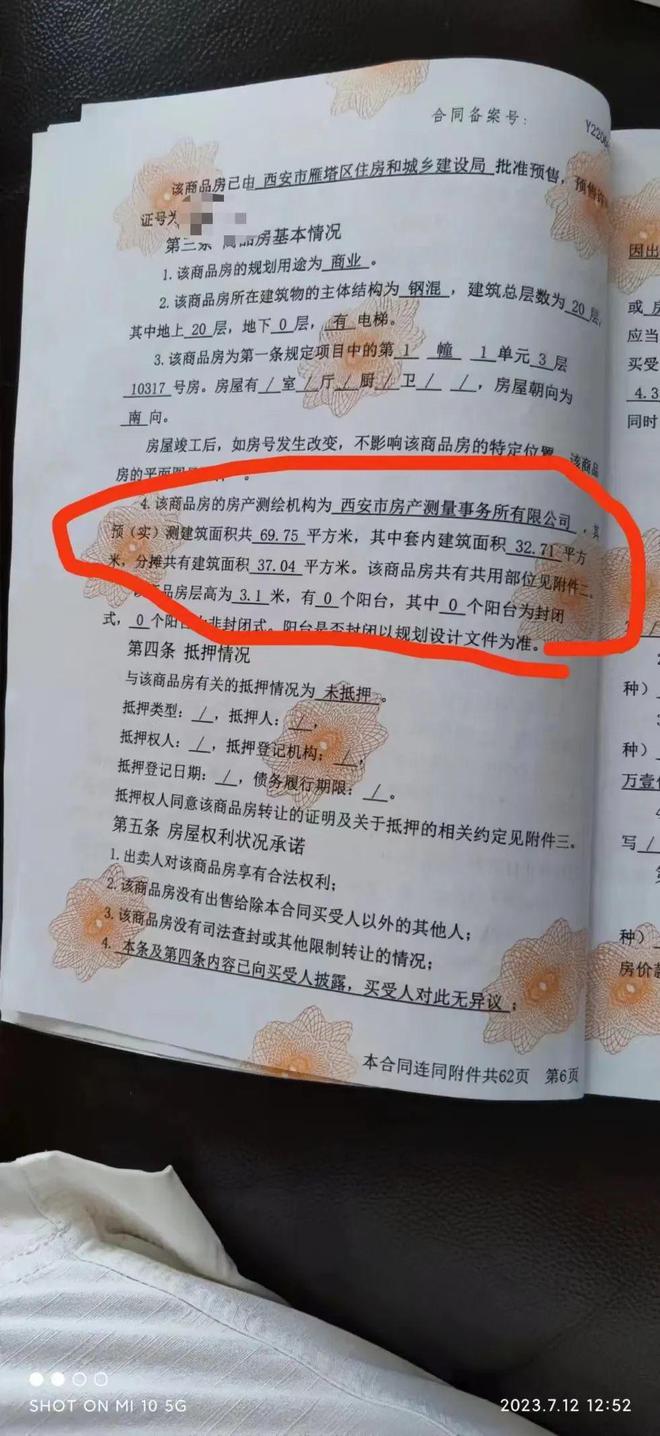 合同备案号：
Y2206
该商品房已由 西安市雁塔区住房和城乡建设局 批准预售，预售许
证号为
第三条 商品房基本情况
1.该商品房的规划用途为 商业 。
2.该商品房所在建筑物的主体结构为 钢混 ，建筑总层数为 20 层，
其中地上 20 层，地下 0 层， 有 电梯。
3.该商品房为第一条规定项目中的第 1 幢 1 单元 3 层
10317 号房。房屋有 / 室 / 厅 / 厨 / 卫 / / ，房屋朝向为
南 向。
房屋竣工后，如房号发生改变，不影响该商品房的特定位置。该商品
房的平面图
4.该商品房的房产测绘机构为 西安市房产测量事务所有限公司 ，其
预（实）测建筑面积共 69.75 平方米，其中套内建筑面积 32.71 平方
米，分摊共有建筑面积 37.04 平方米。该商品房共有共用部位见附件二。
该商品房层高为 3.1 米，有 0 个阳台，其中 0 个阳台为封闭
式， 0 个阳台为非封闭式。阳台是否封闭以规划设计文件为准。
第四条 抵押情况
与该商品房有关的抵押情况为 未抵押 。
抵押类型： / ，抵押人： / ，
抵押权人： / ，抵押登记机构： / ，
抵押登记日期： / ，债务履行期限： / 。
抵押权人同意该商品房转让的证明及关于抵押的相关约定见附件三。
第五条 房屋权利状况承诺
1.出卖人对该商品房享有合法权利；
2.该商品房没有出售给除本合同买受人以外的其他人；
3.该商品房没有司法查封或其他限制转让的情况；
4. 本条及第四条内容已向买受人披露，买受人对此无异议 ；
本合同连同附件共62页 第6页
因出
或
应当
买受
4.3
同时
种）
种）
万壹
写 /
种）
房价款
SHOT ON MI 10 5G
2023.7.12 12:52